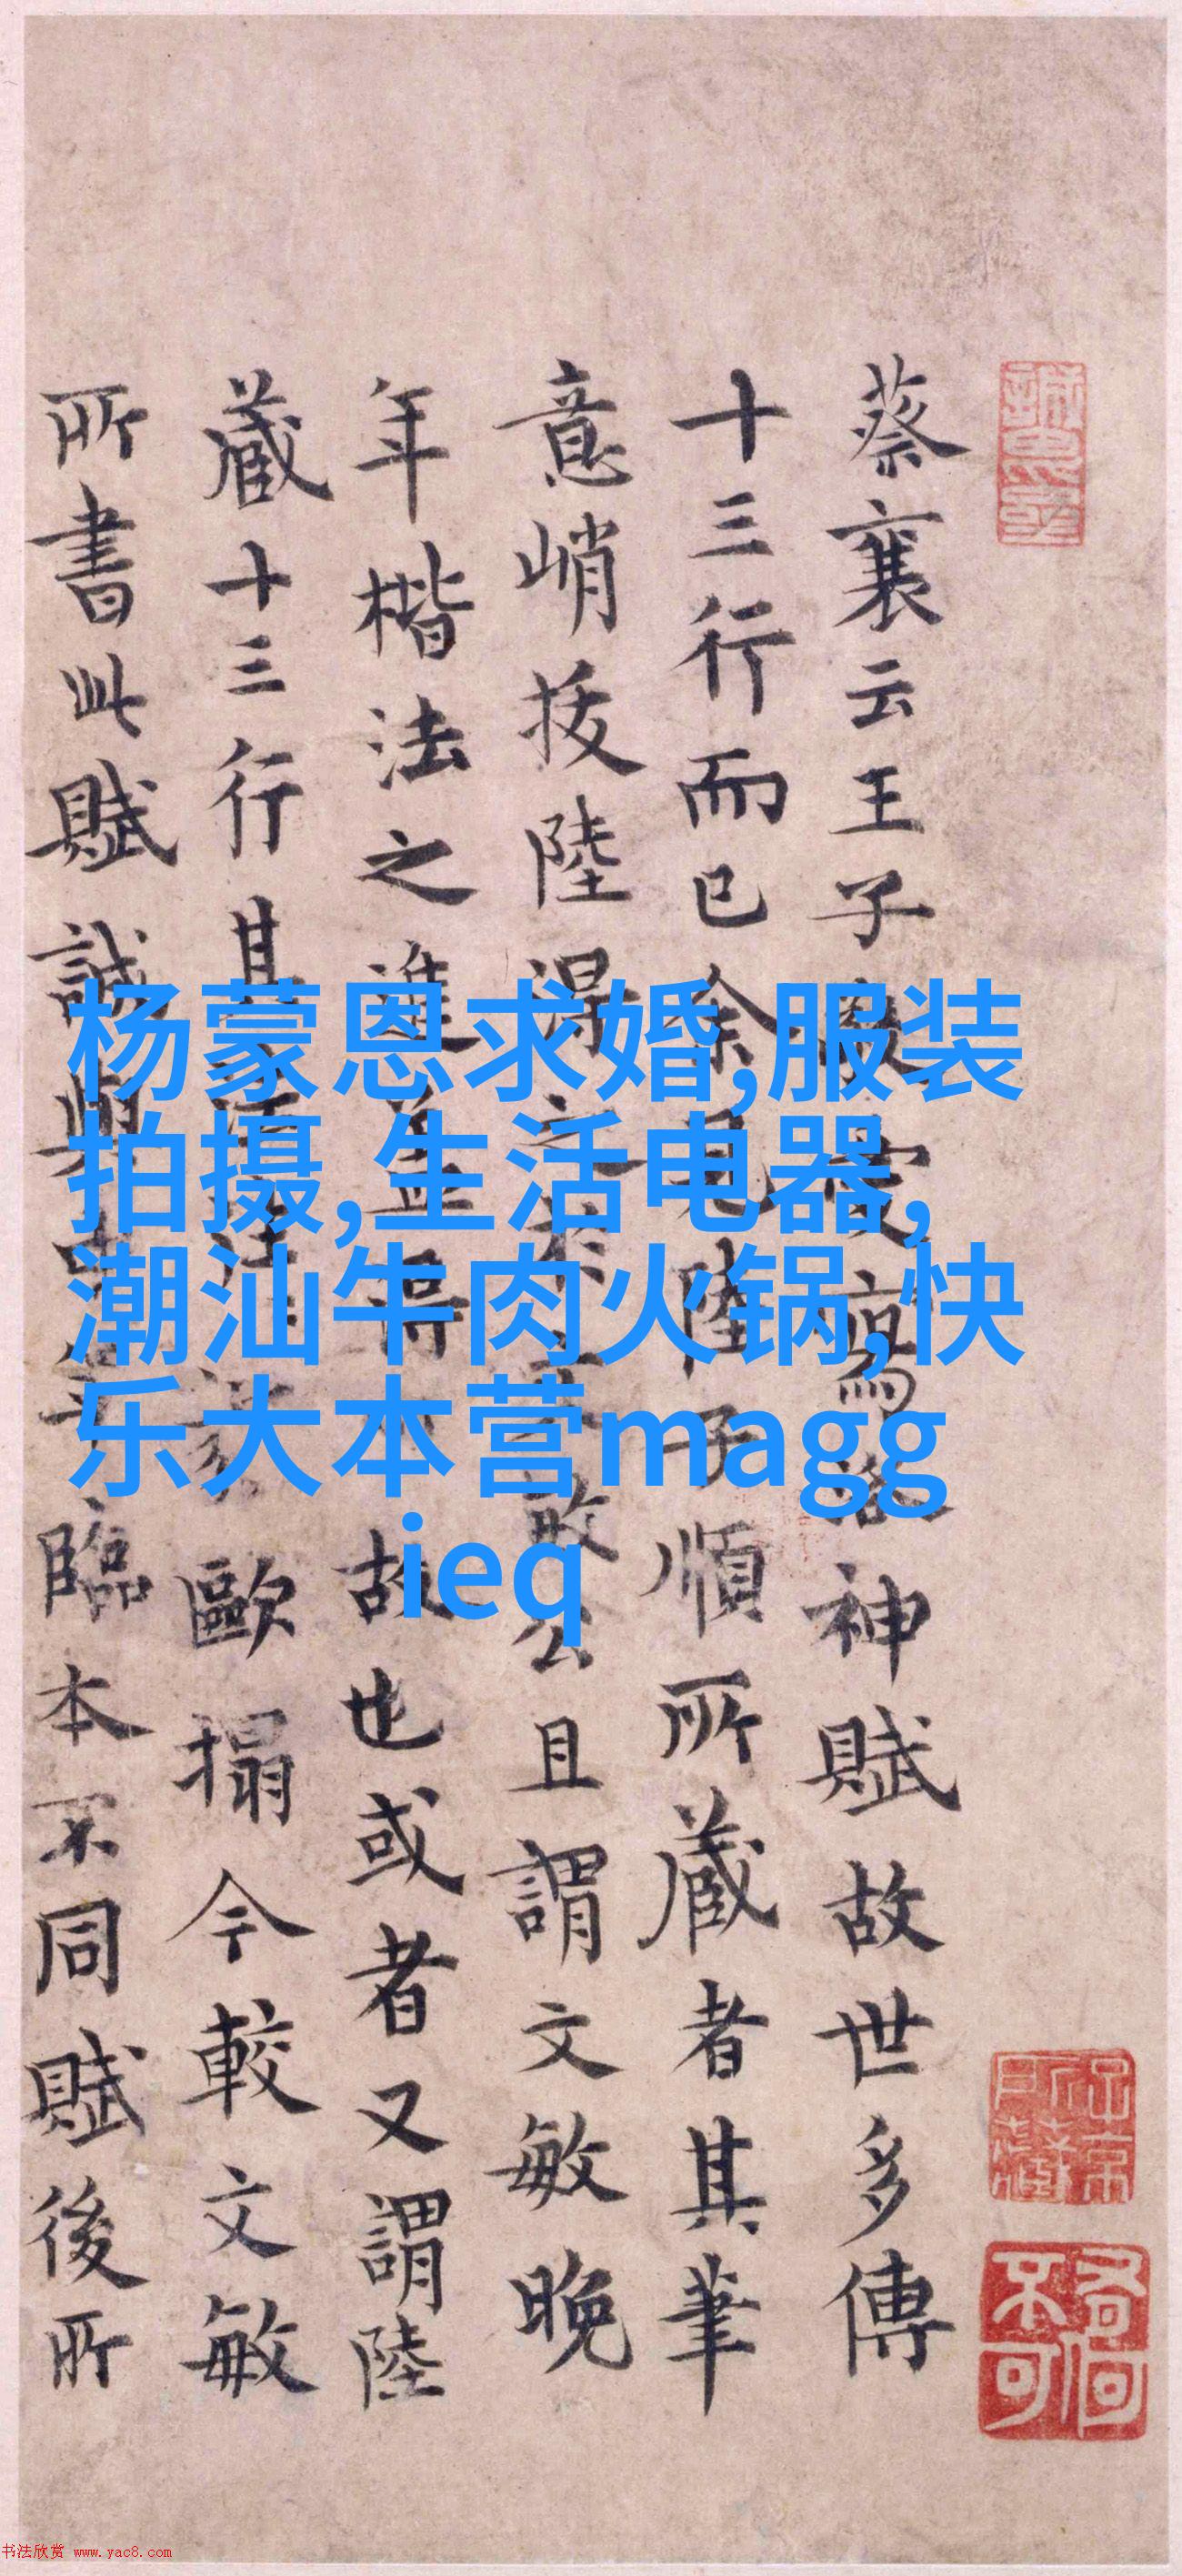 杨蒙恩求婚,服装
拍摄,生活电器,
潮汕牛肉火锅,快
乐大本营magg
ieq
蔡襄云王子寫洛神賦故世多傳
十三行而已余見陸子順所藏者其筆
意峭拔陸得之於敏公且謂文敏晚
年楷法之進益得故也或者又謂陸
藏十三行其歐搨今較文敏
所書此賦誠與年臨本不同賦後所
书法欣赏 www.yac8.com